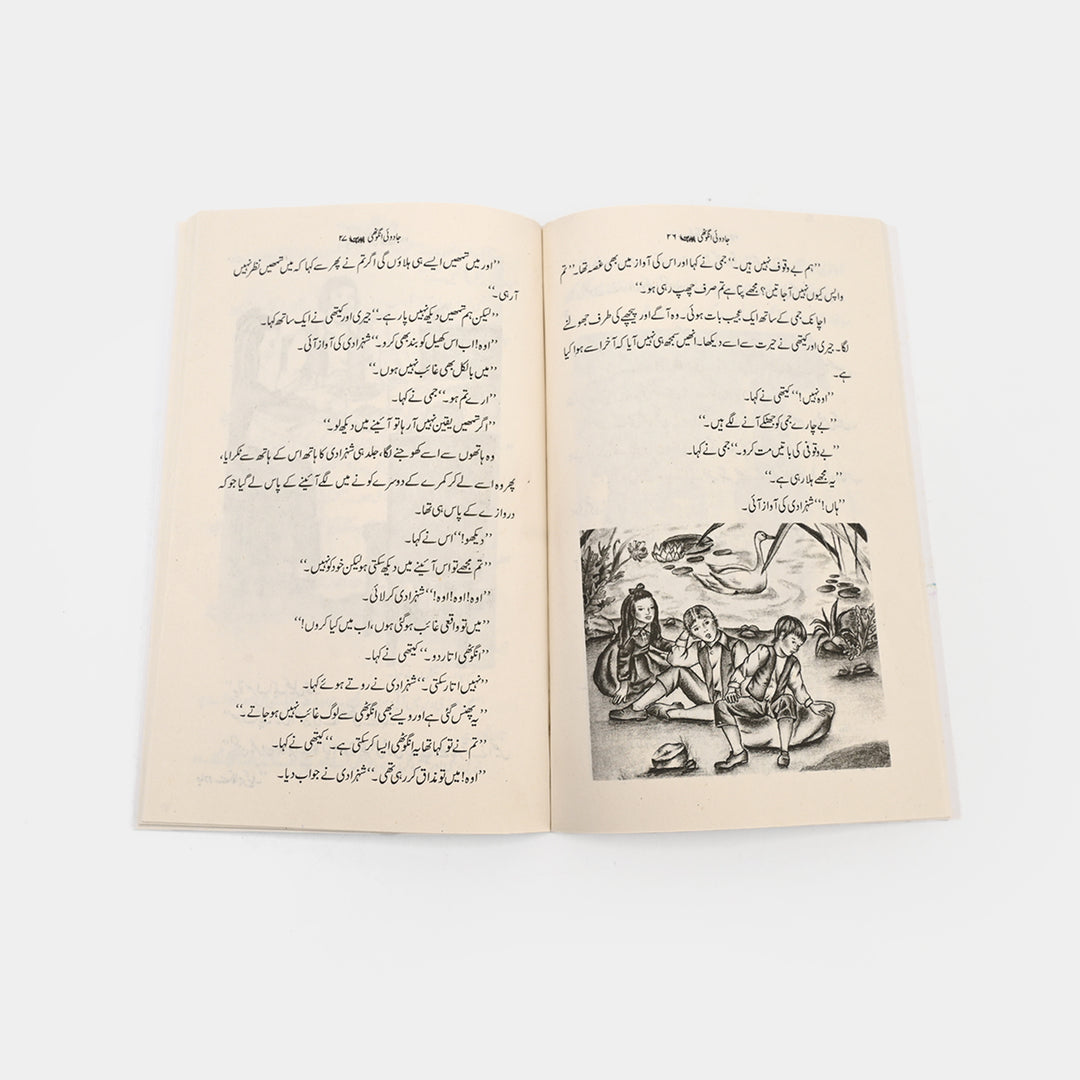 جادوئی انگوٹھی ۲۶
’’ہم بے وقوف نہیں ہیں۔‘‘ جمی نے کہا اور اس کی آواز میں بھی غصہ تھا۔ ’’تم
واپس کیوں نہیں آ جاتیں؟ مجھے پتا ہے تم صرف چھپ رہی ہو۔‘‘
اچانک جمی کے ساتھ ایک عجیب بات ہوئی۔ وہ آگے اور پیچھے کی طرف جھولنے
لگا۔ جیری اور کیتھی نے حیرت سے اسے دیکھا۔ انھیں سمجھ ہی نہیں آیا کہ آخر اسے ہوا کیا
ہے۔
’’اوہ نہیں!‘‘ کیتھی نے کہا۔
’’بے چارے جمی کو جھٹکے آنے لگے ہیں۔‘‘
’’بے وقوفی کی باتیں مت کرو۔‘‘ جمی نے کہا۔
’’یہ مجھے ہلا رہی ہے۔‘‘
’’ہاں!‘‘ شہزادی کی آواز آئی۔
جادوئی انگوٹھی ۲۷
’’اور میں تمھیں ایسے ہی ہلاؤں گی اگر تم نے پھر سے کہا کہ میں تمھیں نظر نہیں
آ رہی۔‘‘
’’لیکن ہم تمھیں دیکھ نہیں پا رہے۔‘‘ جیری اور کیتھی نے ایک ساتھ کہا۔
’’اوہ! اب اس کھیل کو بند بھی کرو۔‘‘ شہزادی کی آواز آئی۔
’’میں بالکل بھی غائب نہیں ہوں۔‘‘
’’ارے تم ہو۔‘‘ جمی نے کہا۔
’’اگر تمھیں یقین نہیں آ رہا تو آئینے میں دیکھ لو۔‘‘
وہ ہاتھوں سے اسے کھوجنے لگا، جلد ہی شہزادی کا ہاتھ اس کے ہاتھ سے ٹکرایا،
پھر وہ اسے لے کر کمرے کے دوسرے کونے میں لگے آئینے کے پاس لے گیا جو کہ
دروازے کے پاس ہی تھا۔
’’دیکھو!‘‘ اس نے کہا۔
’’تم مجھے تو اس آئینے میں دیکھ سکتی ہو لیکن خود کو نہیں۔‘‘
’’اوہ! اوہ! اوہ!‘‘ شہزادی کرلائی۔
’’میں تو واقعی غائب ہو گئی ہوں، اب میں کیا کروں!‘‘
’’انگوٹھی اتار دو۔‘‘ کیتھی نے کہا۔
’’نہیں اتار سکتی۔‘‘ شہزادی نے روتے ہوئے کہا۔
’’یہ پھنس گئی ہے اور ویسے بھی انگوٹھی سے لوگ غائب نہیں ہو جاتے۔‘‘
’’تم نے تو کہا تھا یہ انگوٹھی ایسا کر سکتی ہے۔‘‘ کیتھی نے کہا۔
’’اوہ! میں تو مذاق کر رہی تھی۔‘‘ شہزادی نے جواب دیا۔